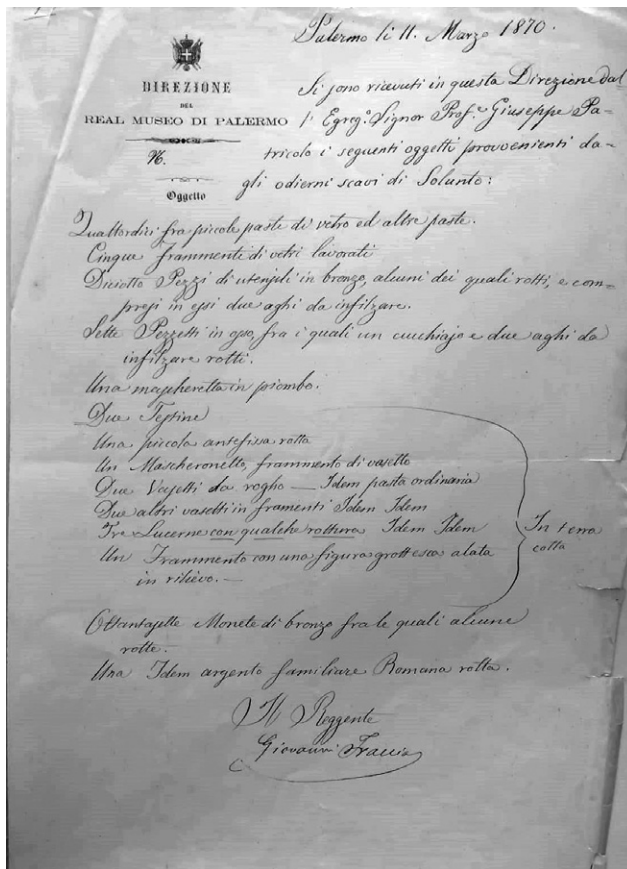 Palermo li 11. Marzo 1870.
DIREZIONE
DEL
REAL MUSEO DI PALERMO
N.
Oggetto
Si sono ricevuti in questa Direzione dal-
l' Egreg.º Signor Prof.e Giuseppe Pa-
tricolo i seguenti oggetti provvenienti da-
gli odierni scavi di Solunto:
Quattordici fra piccole paste di vetro ed altre paste.
Cinque frammenti di vetri lavorati
Diciotto Pezzi di utensili in bronzo, alcuni dei quali rotti, e com-
presi in essi due aghi da infilzare.
Sette Pezzetti in osso, fra i quali un cucchiajo e due aghi da
infilzare rotti.
Una mascheretta in piombo.
Due Testine
Una piccola antefissa rotta
Un Mascheronetto, frammento di vasetto
Due Vasetti da rogho — Idem pasta ordinaria
Due altri vasetti in framenti Idem Idem
Tre Lucerne con qualche rottura Idem Idem
Un Frammento con una figura grottesca alata
in rilievo. —
In terra
cotta
Ottantasette Monete di bronzo fra le quali alcune
rotte.
Una Idem argento familiare Romana rotta.
Il Reggente
Giovanni Fraccia